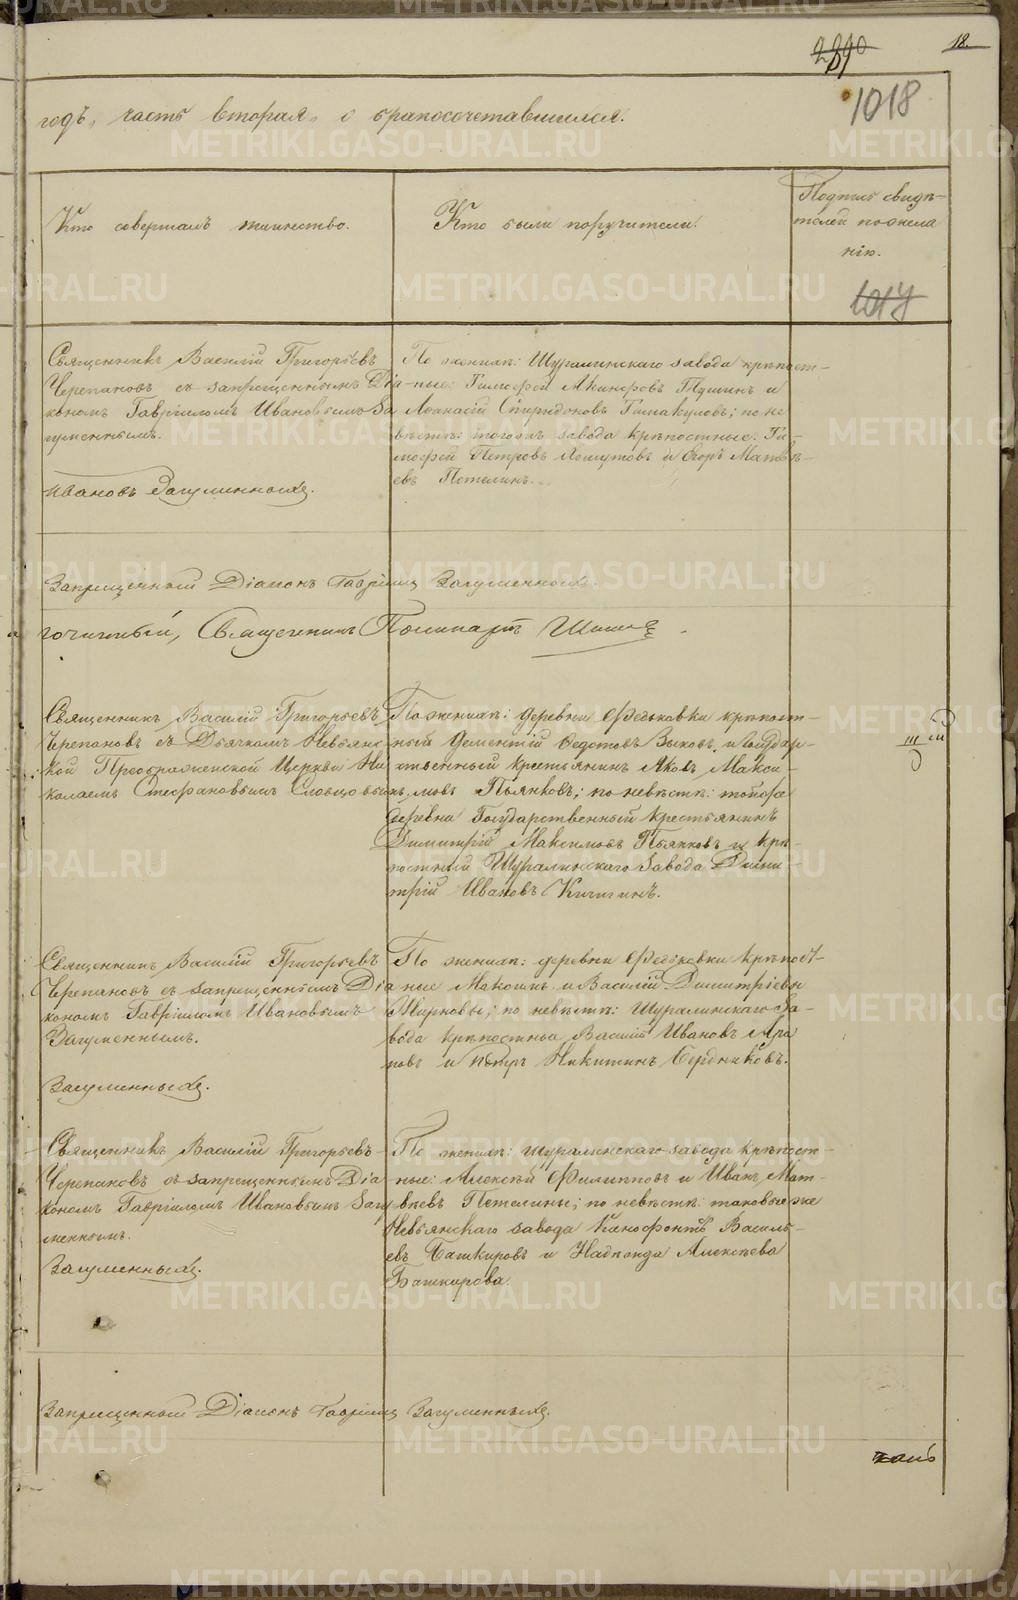 18.
2890
1018
годъ, часть вторая, о бракосочетавшихся.
Кто совершалъ таинство.
Кто были поручители.
Подпись свидѣ-
телей по жела
нію.
1017
Священникъ Василій Григорьевъ
Черепановъ съ запрещеннымъ Діа-
кономъ Гавріиломъ Ивановымъ За
гуменнымъ.
Ивановъ Загуменныхъ.
По женихѣ: Шуралинскаго завода крѣпост-
ные: Тимофей Пушинъ и
Аѳанасій Спиридоновъ; по не
вѣстѣ: тогожъ завода крѣпостные: Ти-
мофей Петровъ Хомутовъ и Егоръ Матвѣ-
евъ Потелинъ.
Запрещенный Діаконъ Гавріилъ Загуменныхъ.
гочинный, Священникъ Поликарпъ
Священникъ Василій Григорьевъ
Черепановъ съ Дьячкомъ Невьянс
кой Преображенской Церкви Ни
колаемъ Стефановымъ Словцовымъ
По женихѣ: деревни Федьковки крѣпост-
ный Дементій Федотовъ Быковъ и Государ-
ственный крестьянинъ Яковъ Макси-
мовъ Пьянковъ; по невѣстѣ: тойже
деревни Государственный крестьянинъ
Димитрій Максимовъ Пьянковъ и крѣ-
постный Шуралинскаго завода Дими-
трій Ивановъ Кичигинъ.
Священникъ Василій Григорьевъ
Черепановъ съ запрещеннымъ Діа
кономъ Гавріиломъ Ивановымъ
Загуменнымъ.
Загуменныхъ.
По женихѣ: деревни Федьковки крѣпост-
ные Макимъ и Василій Димитріевы
Жирновы; по невѣстѣ: Шуралинскаго за-
вода крѣпостные Василій Ивановъ Ара
повъ и Петръ Никитинъ Бердниковъ.
Священникъ Василій Григорьевъ
Черепановъ съ запрещеннымъ Діа
кономъ Гавріиломъ Ивановымъ Загу
меннымъ.
Загуменныхъ.
По женихѣ: Шуралинскаго завода крѣпост-
ные: Алексѣй Филипповъ и Иванъ Мат-
вѣевъ Петелины; по невѣстѣ: таковые же
Невьянскаго завода Ксенофонтъ Василь-
евъ Башкировъ и Надежда Алексѣева
Башкирова.
Запрещенный Діаконъ Гавріилъ Загуменныхъ.
METRIKI.GASO-URAL.RU